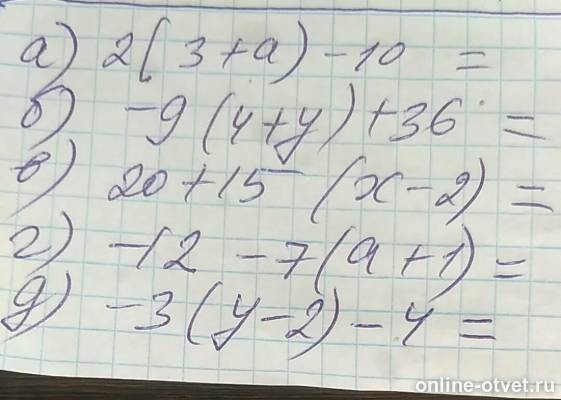 а) 2(3+а)-10 =
б) -9(4+у)+36 =
в) 20+15(х-2) =
г) -12-7(а+1) =
д) -3(у-2)-4 =
online-otvet.ru